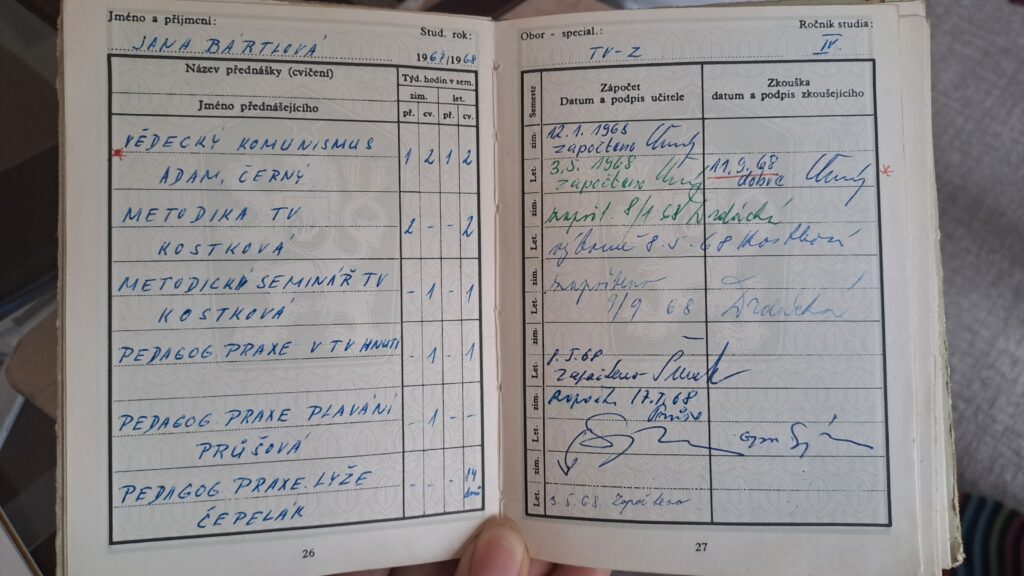 Jméno a příjmení:
Stud. rok:
JANA BÁRTLOVÁ
1967/1968
Název přednášky (cvičení)
Týd. hodin v sem.
Jméno přednášejícího
zim. let.
př. cv. př. cv.
VĚDECKÝ KOMUNISMUS
1 2 1 2
ADAM, ČERNÝ
METODIKA TV
2 - - 2
KOSTKOVÁ
METODICKÁ SEMINÁŘ TV
- 1 - 1
KOSTKOVÁ
PEDAGOG PRAXE V TV HNUTI
- 1 - 1
PEDAGOG PRAXE PLAVÁNÍ
- 1 - -
PRŮŠOVÁ
PEDAGOG PRAXE LYŽE
- - - 14 dnů
ČEPELÁK
26
Obor - special.:
Ročník studia:
TV-Z
IV.
Semestr
Zápočet
Datum a podpis učitele
Zkouška
datum a podpis zkoušejícího
zim.
12.1.1968
započteno
Let.
3.5.1968
započteno
11.9.68
dobře
zim.
8/1 68
Let.
výborně 8.5.68
zim.
započteno
Let.
9/9 68
zim.
Let.
8.5.68
započteno
zim.
68
Let.
zim.
Let.
3.5.68. Započteno
27